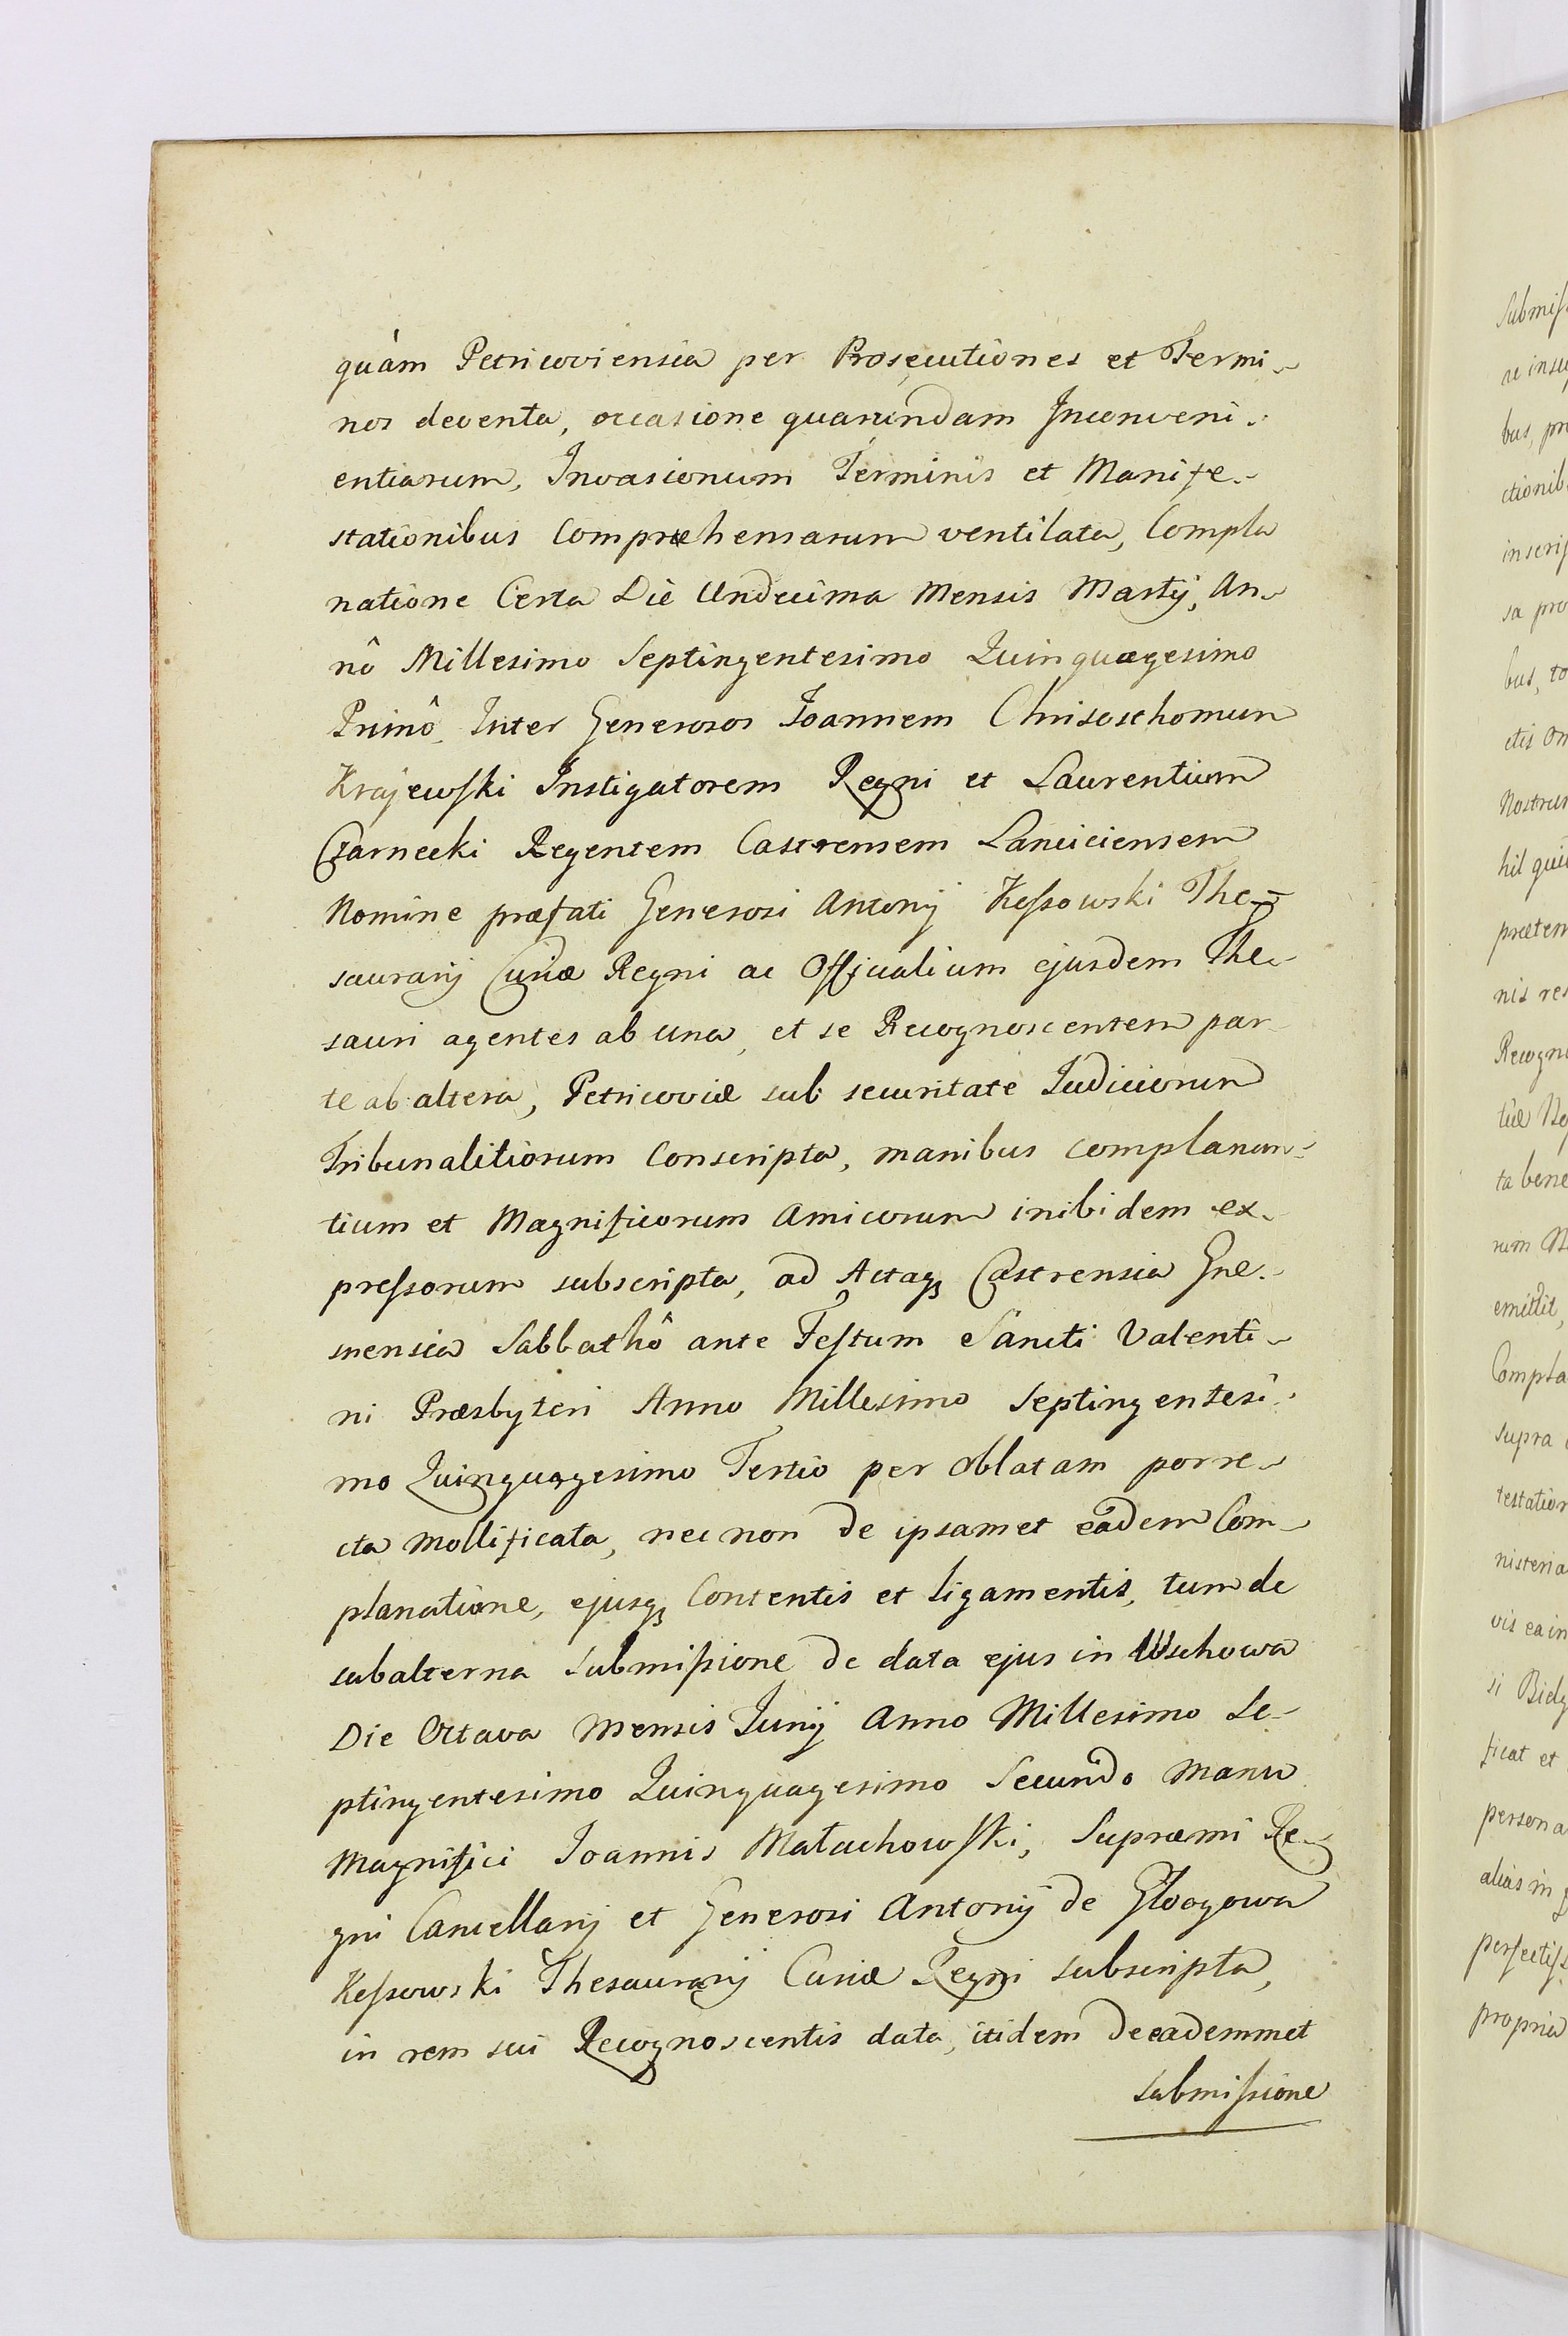 quàm Petricoviensia per Prosecutiones et Termi-
nos deventa, occasione quarundam Inconveni-
entiarum, Invasionum Terminis et Manife-
stationibus Compræhensarum ventilata, Compla
natione Certa Die Undecima Mensis Martij, An-
nô Millesimo Septingentesimo Quinquagesimo
Primô Inter Generosos Joannem Chrisosthomum
Krajewski Instigatorem Regni et Laurentium
Czarnecki Regentem Castrensem Lanciciensem
Nomine præfati Generosi Antonij Kessowski The-
saurarij Curiæ Regni ac Officialium ejusdem The-
sauri agentes ab una, et se Recognoscentem par-
te ab altera, Petricoviæ sub securitate Judiciorum
Tribunalitiorum Conscripta, manibus complanan-
tium et Magnificorum Amicorum inibidem ex-
pressorum subscripta, ad Actaq Castrensia Gne-
snensia Sabbathô ante Festum Sancti Valenti-
ni Præsbyteri Anno Millesimo Septingentesi-
mo Quinquagesimo Tertio per Oblatam porre-
cta Mollificata, nec non de ipsamet eâdem Com-
planatione, ejusq Contentis et ligamentis, tum de
subalterna Submissione de data ejus in Wschowa
Die Octava Mensis Junij Anno Millesimo Se-
ptingentesimo Quinquagesimo Secundo Manu
Magnifici Joannis Małachowski, Supræmi Re-
gni Cancellarij et Generosi Antonij de Głogowa
Kessowski Thesaurarij Curiæ Regni subscripta,
in rem sui Recognoscentis data, itidem de eademmet
Submissione